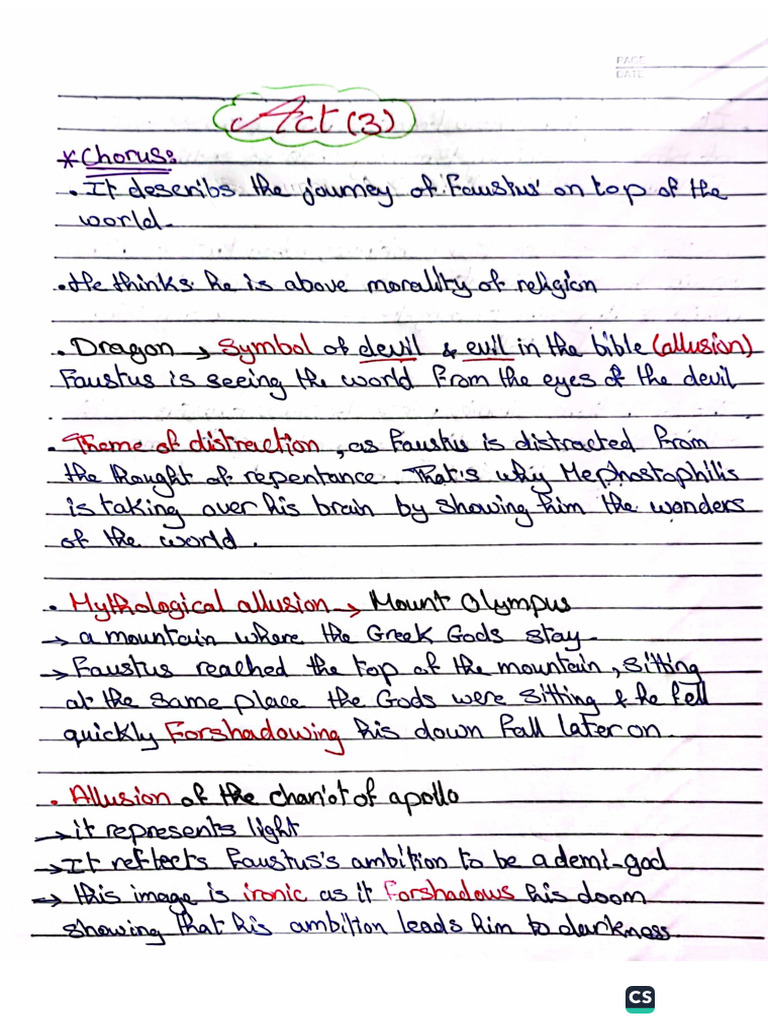 PAGE
DATE
Act (3)
* Chorus:
. It describs the journey of Faustus' on top of the
world.
. He thinks he is above morality of religion
. Dragon → Symbol of devil & evil in the bible (allusion)
Faustus is seeing the world from the eyes of the devil
. Theme of distraction, as Faustus is distracted from
the thought of repentance. That's why Mephostophilis
is taking over his brain by showing him the wonders
of the world.
. Mythological allusion → Mount Olympus
→ a mountain where the Greek Gods stay.
→ Faustus reached the top of the mountain, sitting
at the same place the Gods were sitting & he fell
quickly Forshadowing his down fall later on.
. Allusion of the chariot of apollo
→ it represents light
→ It reflects Faustus's ambition to be a demi-god
→ this image is ironic as it Forshadows his doom
showing that his ambition leads him to darkness.
CS